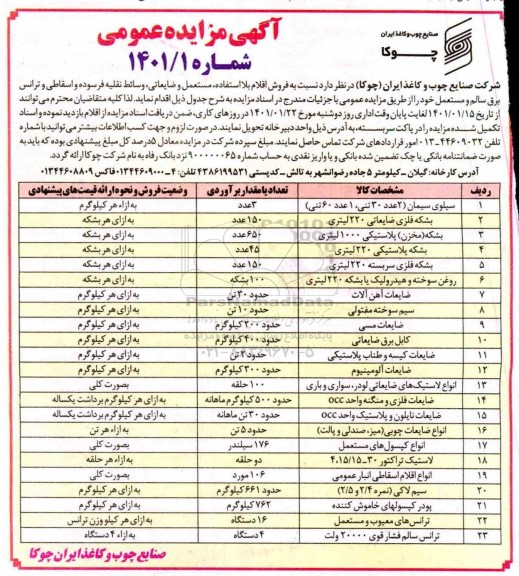 صنایع چوب و کاغذ ایران
چوکا
آگهی مزایده عمومی
شماره ۱۴۰۱/۱
شرکت صنایع چوب و کاغذ ایران (چوکا) در نظر دارد نسبت به فروش اقلام بلااستفاده، مستعمل و ضایعاتی، وسائط نقلیه فرسوده و اسقاطی و ترانس
برق سالم و مستعمل خود را از طریق مزایده عمومی با جزئیات مندرج در اسناد مزایده به شرح جدول ذیل اقدام نماید. لذا کلیه متقاضیان محترم می‌توانند
از تاریخ ۱۴۰۱/۰۱/۱۵ لغایت پایان وقت اداری روز دوشنبه مورخ ۱۴۰۱/۰۱/۲۲ در روزهای کاری، ضمن دریافت اسناد مزایده از اقلام بازدید نموده و اسناد
تکمیل شده مزایده را در پاکت سربسته، به آدرس ذیل واحد دبیرخانه تحویل نمایند. در صورت لزوم و جهت کسب اطلاعات بیشتر می‌توانید با شماره
تلفن ۴۴۶۰۹۰۳۲-۰۱۳ امور قراردادهای شرکت تماس حاصل نمایند. مبلغ سپرده شرکت در مزایده معادل ۵درصد کل مبلغ پیشنهادی بوده که باید به
صورت ضمانتنامه بانکی یا چک تضمین شده بانکی و یا واریز نقدی به حساب شماره ۹۰۰۰۰۰۰۶۵ نزد بانک رفاه به نام شرکت چوکا ارائه گردد.
آدرس کارخانه: گیلان ـ کیلومتر ۵ جاده رضوانشهر به تالش ـ کدپستی ۴۳۸۶۱۹۹۵۳۱ تلفن: ۴ـ۰۱۳۴۴۶۰۹۰۰۰ فاکس ۰۱۳۴۴۶۰۸۸۰۹
ردیف مشخصات کالا تعداد یا مقدار برآوردی وضعیت فروش و نحوه ارائه قیمت‌های پیشنهادی
۱ سیلوی سیمان (۲عدد ۳۰ تنی، ۱ عدد ۶۰ تنی) ۳عدد به ازاء هر کیلوگرم
۲ بشکه فلزی ضایعاتی ۲۲۰ لیتری ۱۵۰ عدد به ازای هر بشکه
۳ بشکه (مخزن) پلاستیکی ۱۰۰۰ لیتری ۶۵۰ عدد به ازای هر بشکه
۴ بشکه پلاستیکی ۲۲۰ لیتری ۴۵ عدد به ازای هر بشکه
۵ بشکه فلزی سربسته ۲۲۰ لیتری ۱۵۰ عدد به ازای هر بشکه
۶ روغن سوخته و هیدرولیک با بشکه ۲۲۰ لیتری ۱۰۰ بشکه به ازای هر بشکه
۷ ضایعات آهن آلات حدود ۳۰ تن به ازای هر کیلوگرم
۸ سیم سوخته مفتولی حدود ۱۰ تن به ازای هر کیلوگرم
۹ ضایعات مسی حدود ۲۰۰ کیلوگرم به ازای هر کیلوگرم
۱۰ کابل برق ضایعاتی حدود ۴۰۰ کیلوگرم به ازای هر کیلوگرم
۱۱ ضایعات کیسه و طناب پلاستیکی حدود ۲ تن به ازای هر کیلوگرم
۱۲ ضایعات آلومینیوم حدود ۳۰۰ کیلوگرم به ازای هر کیلوگرم
۱۳ انواع لاستیک‌های ضایعاتی لودر، سواری و باری ۱۰۰ حلقه بصورت کلی
۱۴ ضایعات فلزی و منگنه واحد occ حدود ۵۰۰ کیلوگرم ماهانه به ازای هر کیلوگرم برداشت یکساله
۱۵ ضایعات نایلون و پلاستیک واحد occ حدود ۳۰ تن ماهانه به ازای هر کیلوگرم برداشت یکساله
۱۶ انواع ضایعات چوبی (میز، صندلی و پالت) حدود ۵ تن به ازاء هر تن
۱۷ انواع کپسول‌های مستعمل ۱۷۶ سیلندر بصورت کلی
۱۸ لاستیک تراکتور ۳۰-۴،۱۵/۱۵ دو حلقه به ازاء هر حلقه
۱۹ انواع اقلام اسقاطی انبار عمومی ۱۰۶ مورد بصورت کلی
۲۰ سیم لاکی (نمره ۲/۴ و ۲/۵) حدود ۶۶۱ کیلوگرم به ازای هر کیلوگرم
۲۱ پودر کپسولهای خاموش کننده ۷۶۲ کیلوگرم به ازای هر کیلوگرم
۲۲ ترانس‌های معیوب و مستعمل ۱۶ دستگاه به ازای هر کیلو وزن ترانس
۲۳ ترانس سالم فشار قوی ۲۰۰۰۰ ولت ۴ دستگاه به ازاء ۴ دستگاه
صنایع چوب و کاغذ ایران چوکا